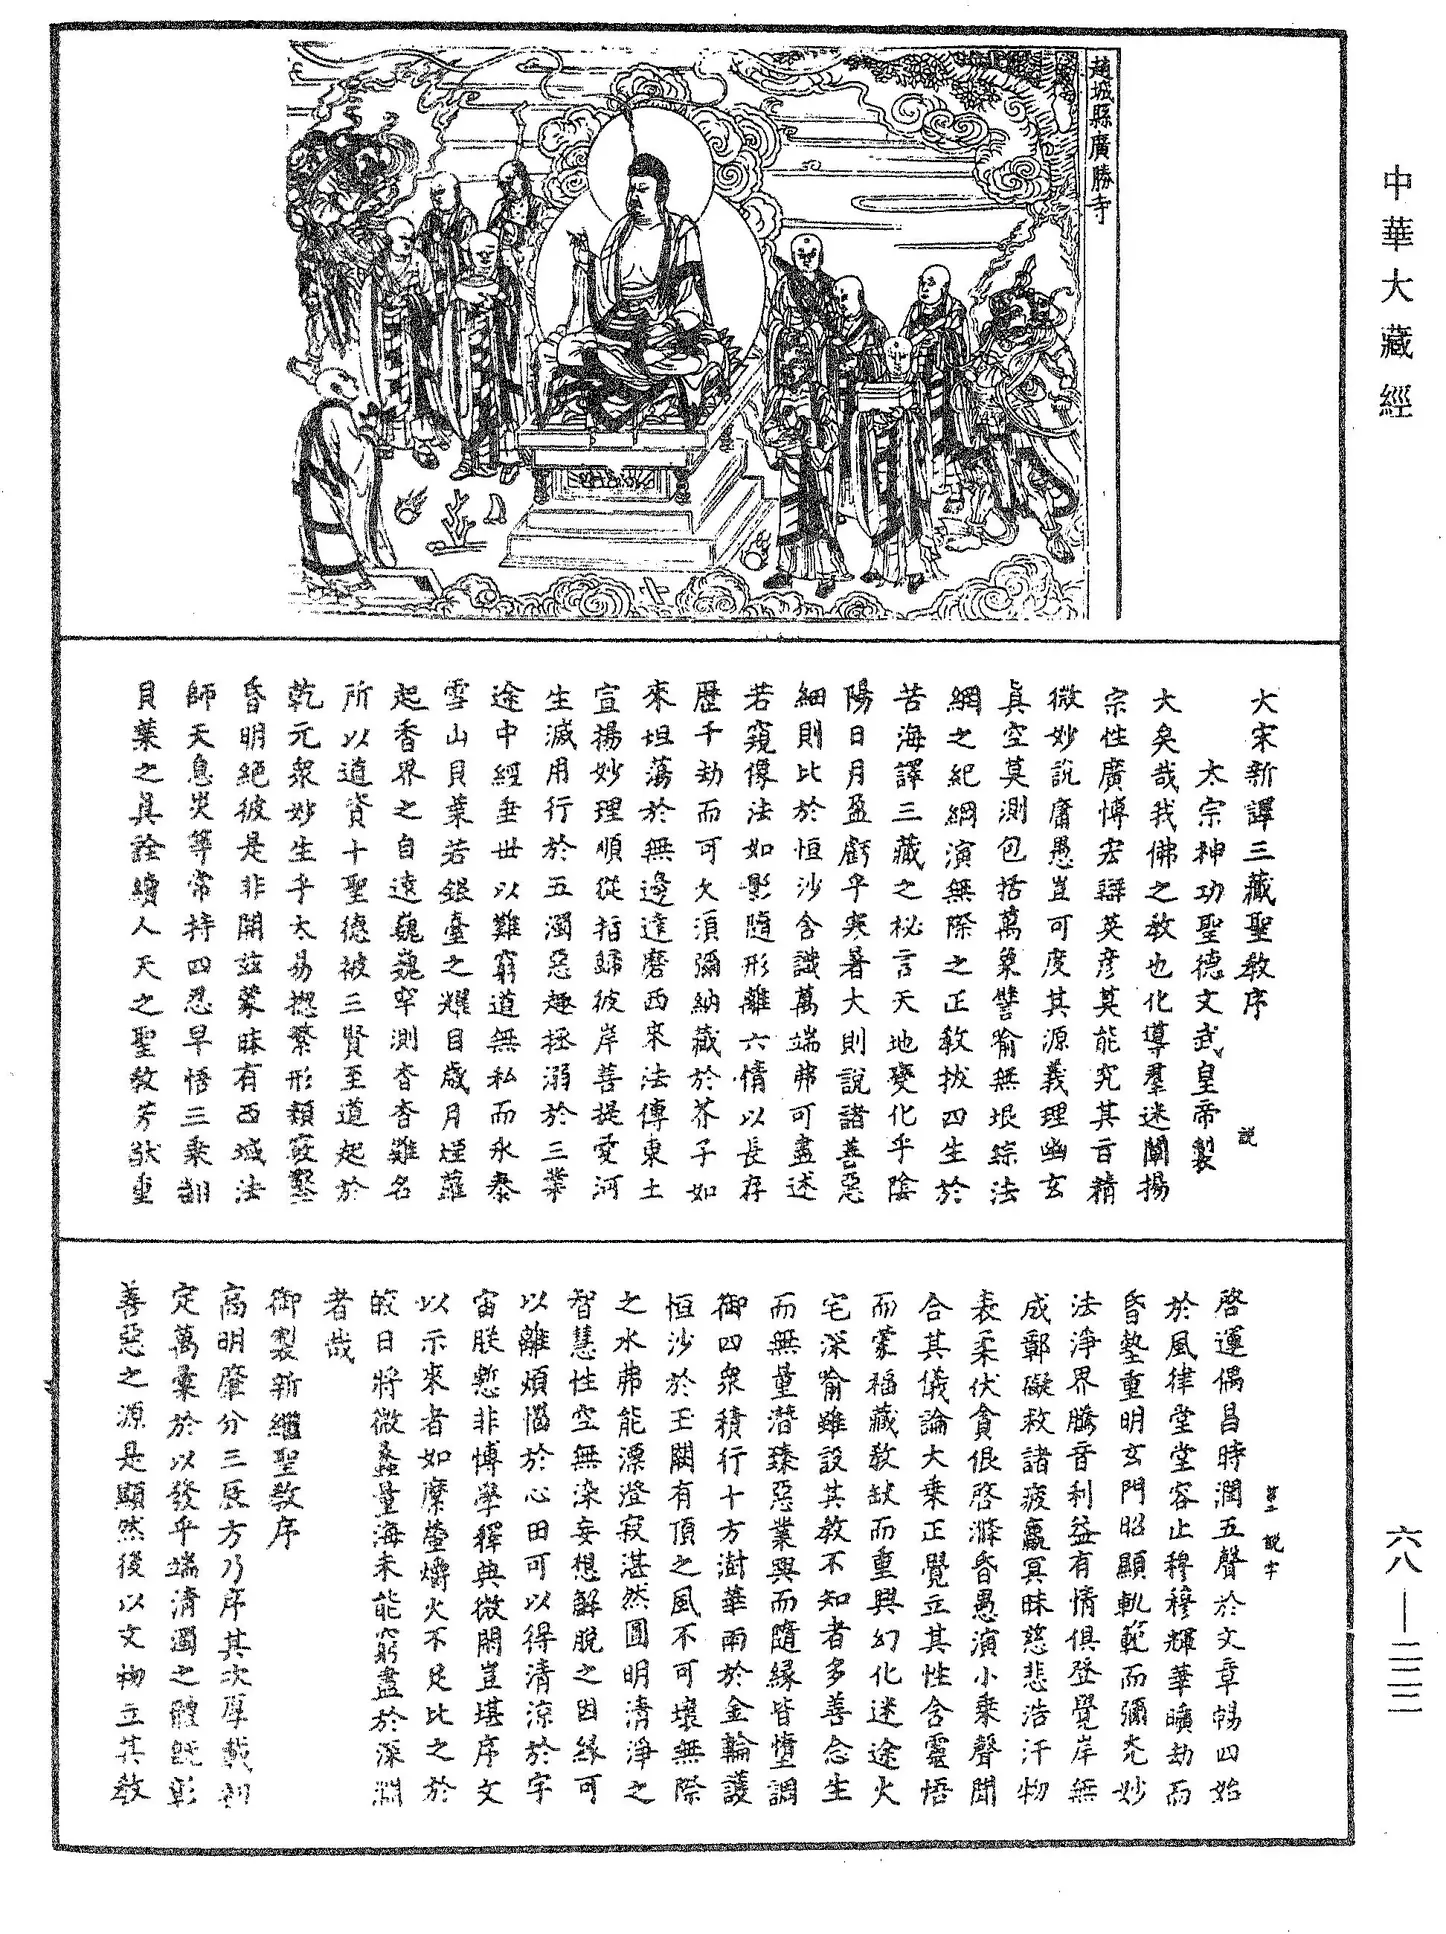 趙城縣廣勝寺
中華大藏經
大宋新譯三藏聖敎序
說
太宗神功聖德文武皇帝製
大矣哉我佛之敎也化導羣迷闡揚
宗性廣博宏辯英彦莫能究其旨精
微妙說庸愚豈可度其源義理幽玄
眞空莫測包括萬象譬喻無垠綜法
網之紀綱演無際之正敎拔四生於
苦海譯三藏之秘言天地變化乎陰
陽日月盈虧乎寒暑大則說諸善惡
細則比於恒沙含識萬端弗可盡述
若窺像法如影隨形離六情以長存
歷千劫而可久須彌納藏於芥子如
來坦蕩於無邊達磨西來法傳東土
宣揚妙理順從指歸彼岸菩提愛河
生滅用行於五濁惡趣拯溺於三業
途中經垂世以難窮道無私而永泰
雪山貝葉若銀臺之耀目歲月煙蘿
起香界之自遠巍巍罕測杳杳難名
所以道資十聖德被三賢至道起於
乾元衆妙生乎太易摠繁形類竅鑿
昏明絕彼是非開兹蒙昧有西域法
師天息災等常持四忍早悟三乘翻
貝葉之眞詮續人天之聖敎芳猷重
第二 說字
啓運偶昌時潤五聲於文章暢四始
於風律堂堂容止穆穆輝華曠劫而
昏墊重明玄門昭顯軌範而彌光妙
法淨界騰音利益有情俱登覺岸無
成鄣礙救諸疲羸冥昧慈悲浩汗物
表柔伏貪很啓滌昏愚演小乘聲聞
合其儀論大乘正覺立其性含靈悟
而蒙福藏敎缺而重興幻化迷途火
宅深喻雖設其敎不知者多善念生
而無量潜臻惡業興而隨緣皆墮調
御四衆積行十方澍華雨於金輪護
恒沙於玉闕有頂之風不可壞無際
之水弗能漂澄寂湛然圓明清淨之
智慧性空無染妄想解脫之因緣可
以離煩惱於心田可以得清涼於宇
宙朕慙非博學釋典微閑豈堪序文
以示來者如縻螢爝火不足比之於
皎日將微蠡量海未能窮盡於深淵
者哉
御製新繼聖敎序
高明肇分三辰方乃序其次厚載初
定萬彙於以發乎端清濁之體旣彰
善惡之源是顯然後以文物立其敎
六八—二二二